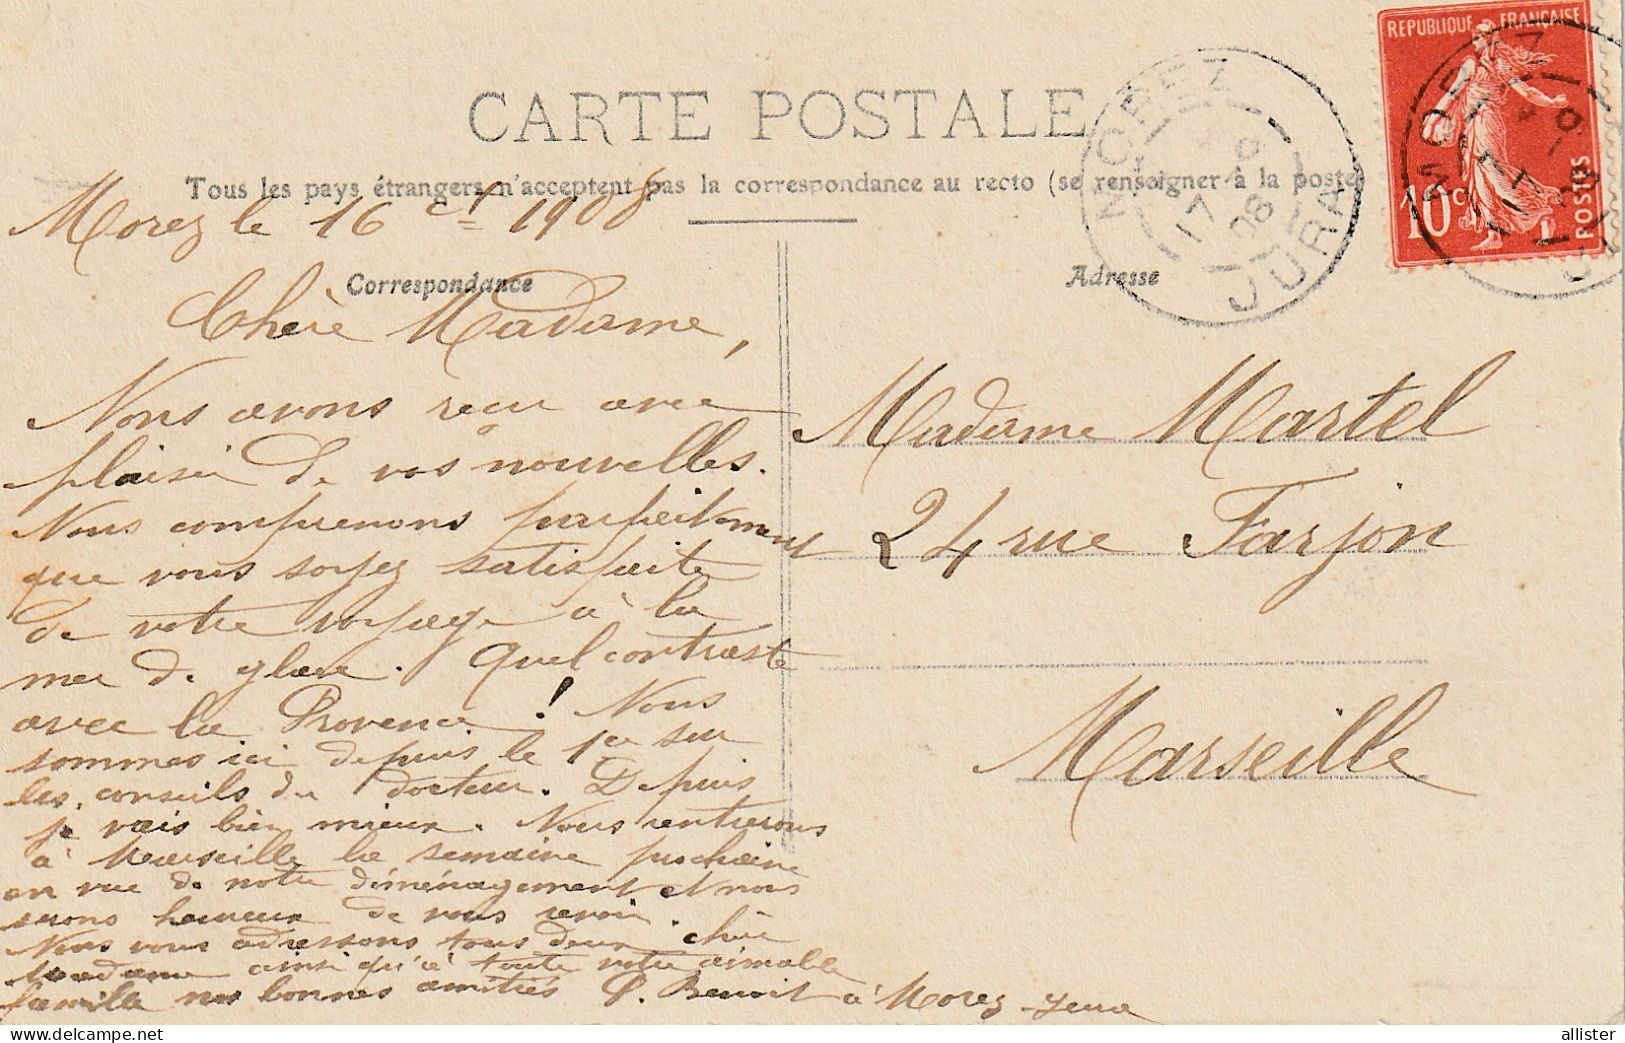 CARTE POSTALE
Tous les pays étrangers n'acceptent pas la correspondance au recto (se renseigner à la poste
Morez le 16 ct 1908
Correspondance
Chère Madame,
Nous avons reçu avec
plaisir de vos nouvelles.
Nous comprenons parfaitement
que vous soyez satisfaite
de votre voyage à la
mer de glace. Quel contraste
avec la Provence! Nous
sommes ici depuis le 1er sur
les conseils du docteur. Depuis
je vais bien mieux. Nous rentrerons
à Marseille la semaine prochaine
en vue de notre déménagement et nous
serons heureux de vous revoir.
Nous vous adressons tous deux chère
Madame ainsi qu'à toute votre aimable
famille nos bonnes amitiés P. Benoit à Morez-Jura
Adresse
Madame Martel
24 rue Farjon
Marseille
REPUBLIQUE FRANÇAISE
10c
POSTES
MOREZ
17 -9
08
JURA
MOREZ
17 -9
08
allister
www.delcampe.net